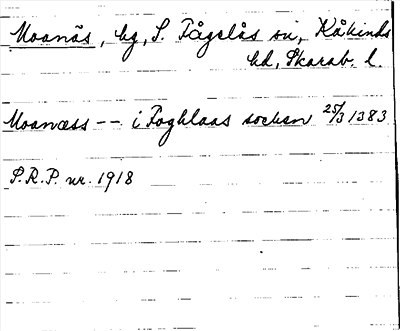 Moanäs, hg, S. Fågelås sn, Kåkinds
hd, Skarab. l.
Moanæss -- i Foghlaas socken 25/3 1383
S.R.P. nr. 1918